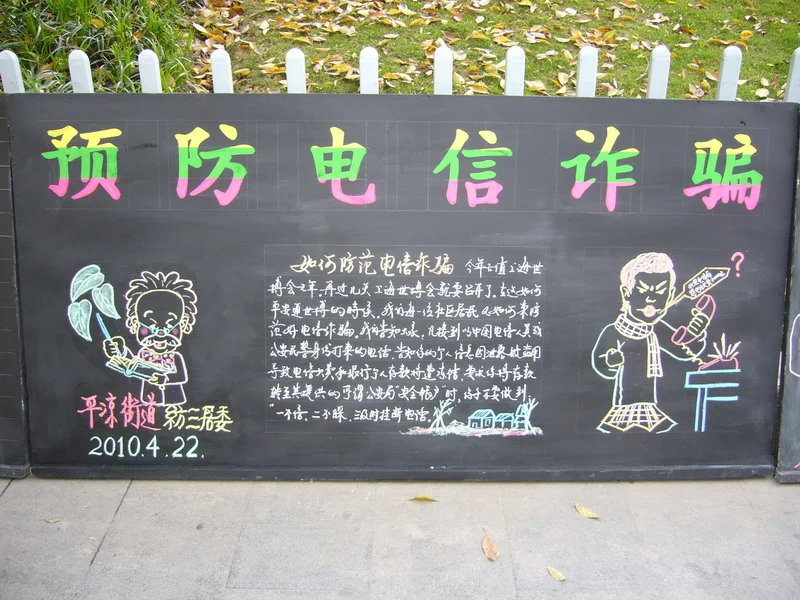 预防电信诈骗
如何防范电信诈骗 今年正值上海世
博会之年，再过几天上海世博会就要召开了，在这如何
平安迎世博的时候，我们每一位社区居民又如何来防
范好电信诈骗。我们告知大家，凡接到以中国电信人员或
公安民警身份打来的电话，告知你的个人信息因泄露被盗用
导致电信欠费和银行个人存款将遭冻结，要求你将存款
转至其提供的所谓公安局"安全帐户"时，请千万要做到
"一不信、二不睬、三及时挂断电话。
?
平凉街道 纺三居委
2010.4.22.